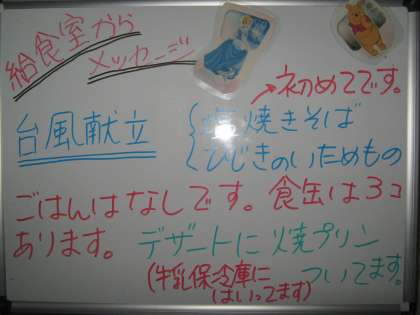 給食室から
メッセージ
→初めてです。
台風献立
焼きそば
ひじきのいためもの
ごはんはなしです。食缶は3コ
あります。デザートに焼プリン
ついてます。
(牛乳保冷庫に
はいってます)